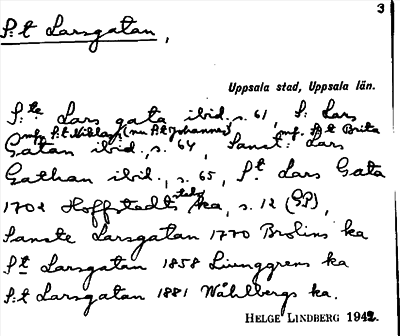 3
S:t Larsgatan,
Uppsala stad, Uppsala län.
S:te Lars gata ibid. s. 61, S: Lars
mf. S:t Niklas (nu S:t Johannes) mf. S:t Brita
Gatan ibid., s. 64, Sanct: Lars
Gathan ibid., s. 65, St Lars Gata
1702 Hoffstedts ka, s. 12 (GP),
Sancte Larsgatan 1770 Brolins ka
St Larsgatan 1858 Ljunggrens ka
S:t Larsgatan 1881 Wåhlbergs ka.
HELGE LINDBERG 1942.